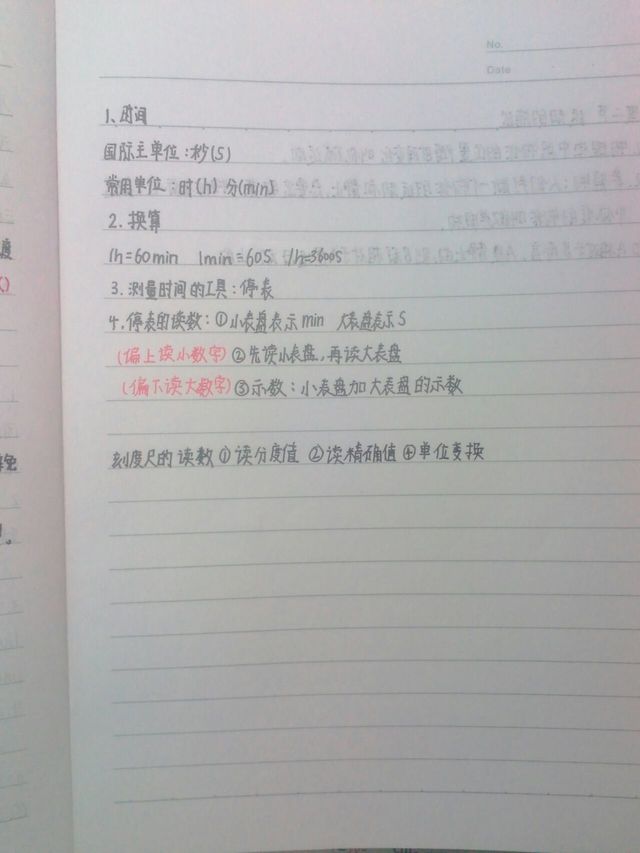 No.
Date
1、时间
国际主单位:秒(S)
常用单位:时(h) 分(min)
2. 换算
1h=60min 1min=60S 1h=3600S
3. 测量时间的工具:停表
4. 停表的读数:①小表盘表示min 大表盘表示S
(偏上读小数字)②先读小表盘,再读大表盘
(偏下读大数字)③示数:小表盘加大表盘的示数
刻度尺的读数①读分度值 ②读精确值④单位变换